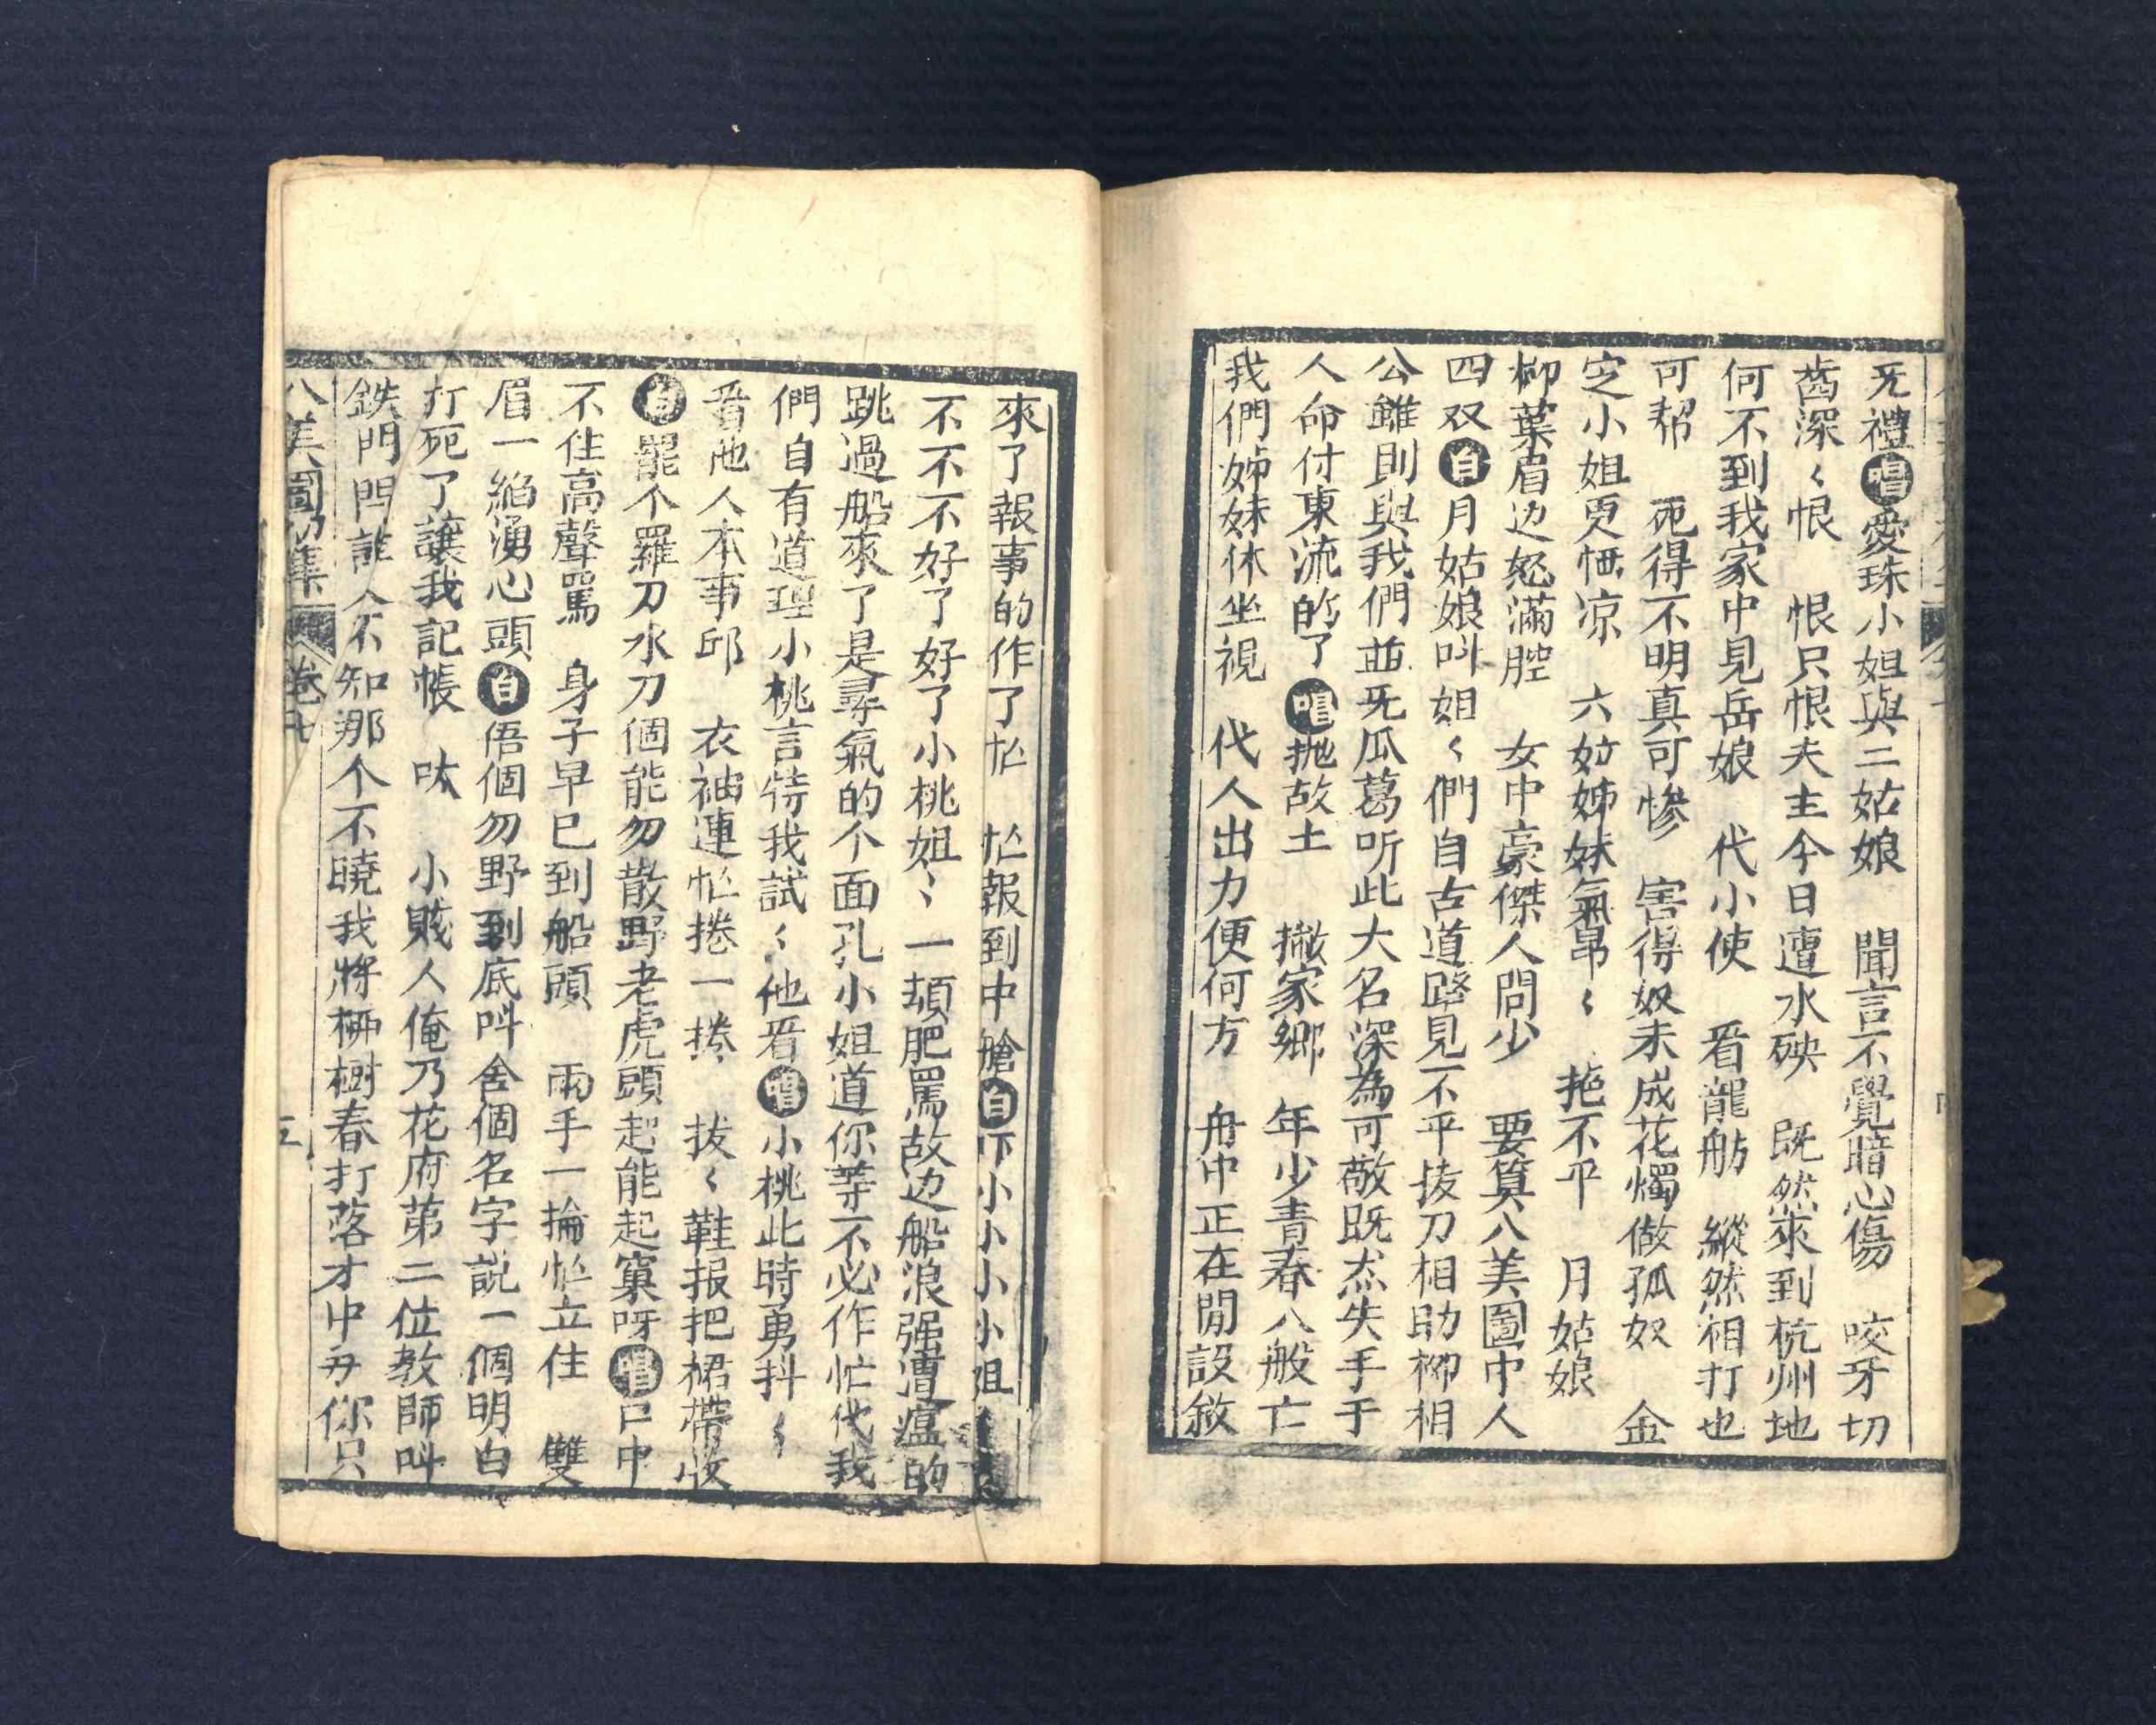 无禮唱愛珠小姐與二姑娘　聞言不覺暗心傷　咬牙切
齒深〻恨　恨只恨夫主今日遭水殃　既然來到杭州地
何不到我家中見岳娘　代小使　看龍舫　縱然相打也
可帮　死得不明真可慘　害得奴未成花燭做孤奴　金
定小姐更恓凉　六妏姊妹氣昂〻　抱不平　月姑娘
柳葉眉边怒滿腔　女中豪傑人間少　要算八美圖中人
四双白月姑娘叫姐〻們自古道路見不平拔刀相助柳相
公雖則與我們並无瓜葛听此大名深為可敬既然失手于
人命付東流的了唱抛故土　撇家鄉　年少青春八般亡
我們姊妹休坐視　代人出力便何方　舟中正在閒設敘
來了報事的作了忙　忙報到中艙白吓小小小小小姐
不不不好了好了小桃姐〻一頑肥罵故边船浪强漕瘟的
跳過船來了是尋氣的个面孔小姐道你等不必作忙代我
們自有道理小桃言待我試〻他看唱小桃此時勇抖〻
看他人本事邱　衣袖連忙捲一捲　拔〻鞋报把裙帶收
白罷个羅刀水刀個能勿散野老虎頭起能起窠呀唱口中
不住高聲罵　身子早已到船頭　兩手一掄忙立住　雙
眉一縐湧心頭白㑄個勿野到底叫舍個名字説一個明白
打死了讓我記帳　呔　小賤人俺乃花府第二位教師叫
鉄門閂誰人不知那个不曉我將柳樹春打落才中毋你只
八美圖初集　卷七　五